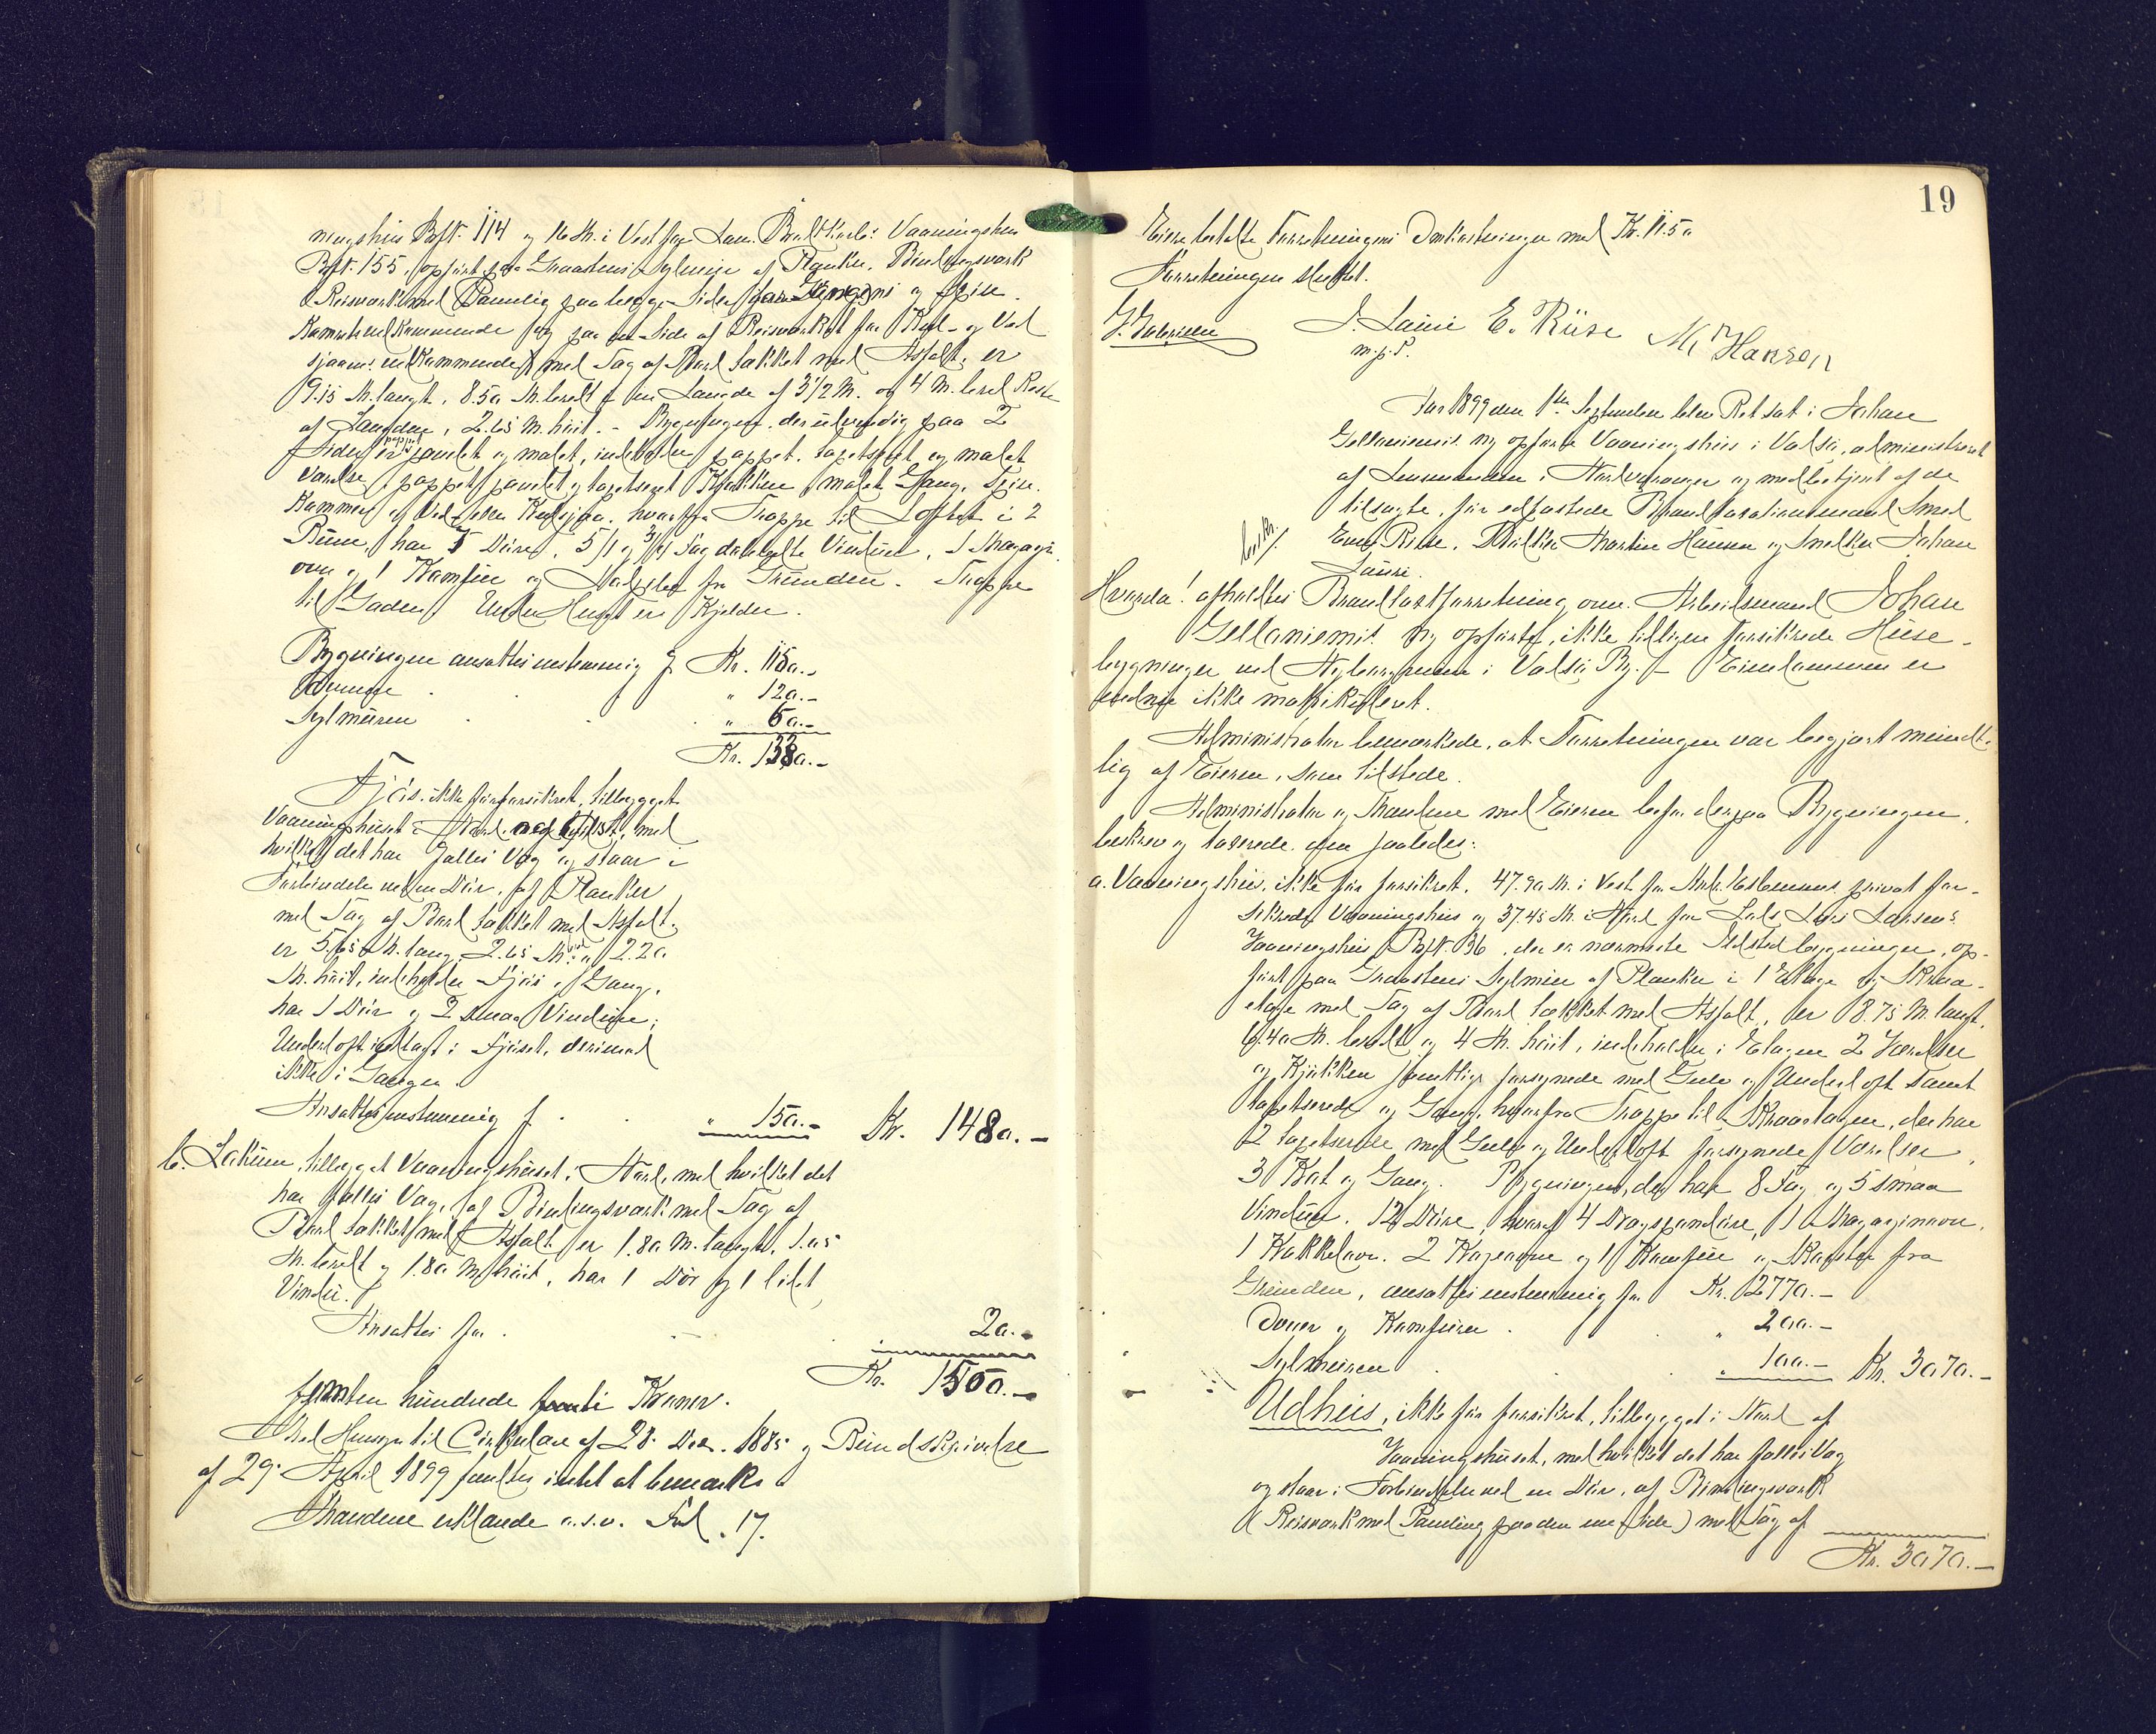 ningshus Bft. 114 og 16 M. i Vest for Lau. Vaaningshus
Bft. 155, opført paa Graastens Sylmur af Planker, Bindingsværk
Reisværk med Panelig paa begge Sider og Spise-
Kammer vedkommende og paa en Side af Reisværket for Kul- og Ved
sjaaens vedkommende med Tag af Bord tækket med Asfalt, er
9.15 M. langt, 8.50 M. bredt i en Længde af 3 1/2 M. og 4 M. bred Resten
af Længden, 2.65 M. høit. - Bygningen, der udvendig paa 2
Sider er pappet panelt og malet, indeholder pappet, tapetseret og malet
Værelse, pappet, panelt og tapetseret Kjøkken, malet Gang, Spise-
Kammer og Ved- eller Kulsjaa, hvorfra Trappe til Loftet i 2
Rum, har 7 Døre, 5/1 og 3/4 Fag Vinduer, 1 Magasin-
ovn og 1 Komfur og fra Grunden. Trappe
til Gaden. Under Huset er Kjelder.
Bygningen ansattes enstemmig f Kr. 1150.-
Ovnene " 120.-
Sylmuren " 60.-
Kr. 1330.-
Fjøs, ikke før forsikret, tilbygget
Vaaningshuset i Nord, med
hvilket det har fælles Væg og staar i
Forbindelse ved en Dør, af Planker
med Tag af Bord tækket med Asfalt,
er 5.65 M. lang, 2.65 M. bred og 2.20
M. høit, indeholder Fjøs og Gang,
har 1 Dør og 2 smaa Vinduer;
Underloft indlagt i Fjøset, derimod
ikke i Gangen.
Ansattes enstemmig f. " 150.- Kr. 1480.-
b. Latrin, tilbygget Vaaningshuset i Nord, med hvilket det
har fælles Væg, af Bindingsværk med Tag af
Bord tækket med Asfalt er 1.80 M. langt, 1.05
M. bredt og 1.80 M. høit, har 1 Dør og 1 lidet
Vindu.
Ansattes for 20.-
Kr. 1500.-
femten hundrede Kroner.
Med Hensyn til Cirkulære af 28. Decr. 1885 og Rundskrivelse
af 29. April 1899 fandtes intet at bemærke
Mændene erklærede o.s.v. Fol. 17.
19
Eieren betalte Forretningens Omkostninger med Kr. 11.50
Forretningen sluttet.
G. Gabrielsen J. Lauri E. Riise M. Hansen
m.p.P.
Aar 1899 den 1ste September blev Ret sat i Johan
Gellaniemis ny opførte Vaaningshus i Vadsø, administreret
af Lensmanden i Nordvaranger og medbetjent af de
tilsagte, før edfæstede Brandtaxationsmænd Smed
Evert Riise, Martin Hansen og Snekker Johan
Lauri.
Hvorda! afholdtes Brandtaxtforretning over Arbeidsmand Johan
Gellaniemis ny opførte, ikke tidligere forsikrede Huse-
bygninger ved i Vadsø By. - Eiendommen er
endnu ikke matrikuleret.
Administrator bemærkede, at Forretningen var begjært mundt-
lig af Eieren, som tilstede.
Administrator og Mændene med Eieren besaa derpaa Bygningen,
beskrev og taxerede den saaledes:
a. Vaaningshus, ikke før forsikret, 47.90 M. i Vest for Andr. Eslemans privat for-
sikrede Vaaningshus og 37.45 M. i Nord for Lars Larsens
Vaaningshus Bft. 36, der er nærmeste Ildsted bygninger, op-
ført paa Graastens Sylmur af Planker i 1 Etage og Skraa-
etage med Tag af Bord tækket med Asfalt, er 8.75 M. langt,
6.40 M. bredt og 4 M. høit, indeholder i Etagen 2 Værelser
og Kjøkken samtlige forsynede med Gulv og Underloft samt
tapetserede og Gang, hvorfra Trappe til Skraaetagen, der har
2 tapetserede med Gulv og Underloft forsynede Værelser,
3 Kot og Gang. Bygningen, der har 8 Fag og 5 smaa
Vinduer, 12 Døre, hvoraf 4 Dragspandøre, 1 Magasinovn,
1 Kakkelovn, 2 og 1 Komfur og Skorsten fra
Grunden, ansattes enstemmig for Kr. 2770.-
Ovner og Komfuren " 200.-
Sylmuren " 100.- Kr. 3070.-
Udhus, ikke før forsikret, tilbygget i Nord af
Vaaningshuset, med hvilket det har fælles Væg
og staar i Forbindelse ved en Dør, af Bindingsværk
(Reisværk med Paneling paa den ene Side) med Tag af
Kr. 3070.-